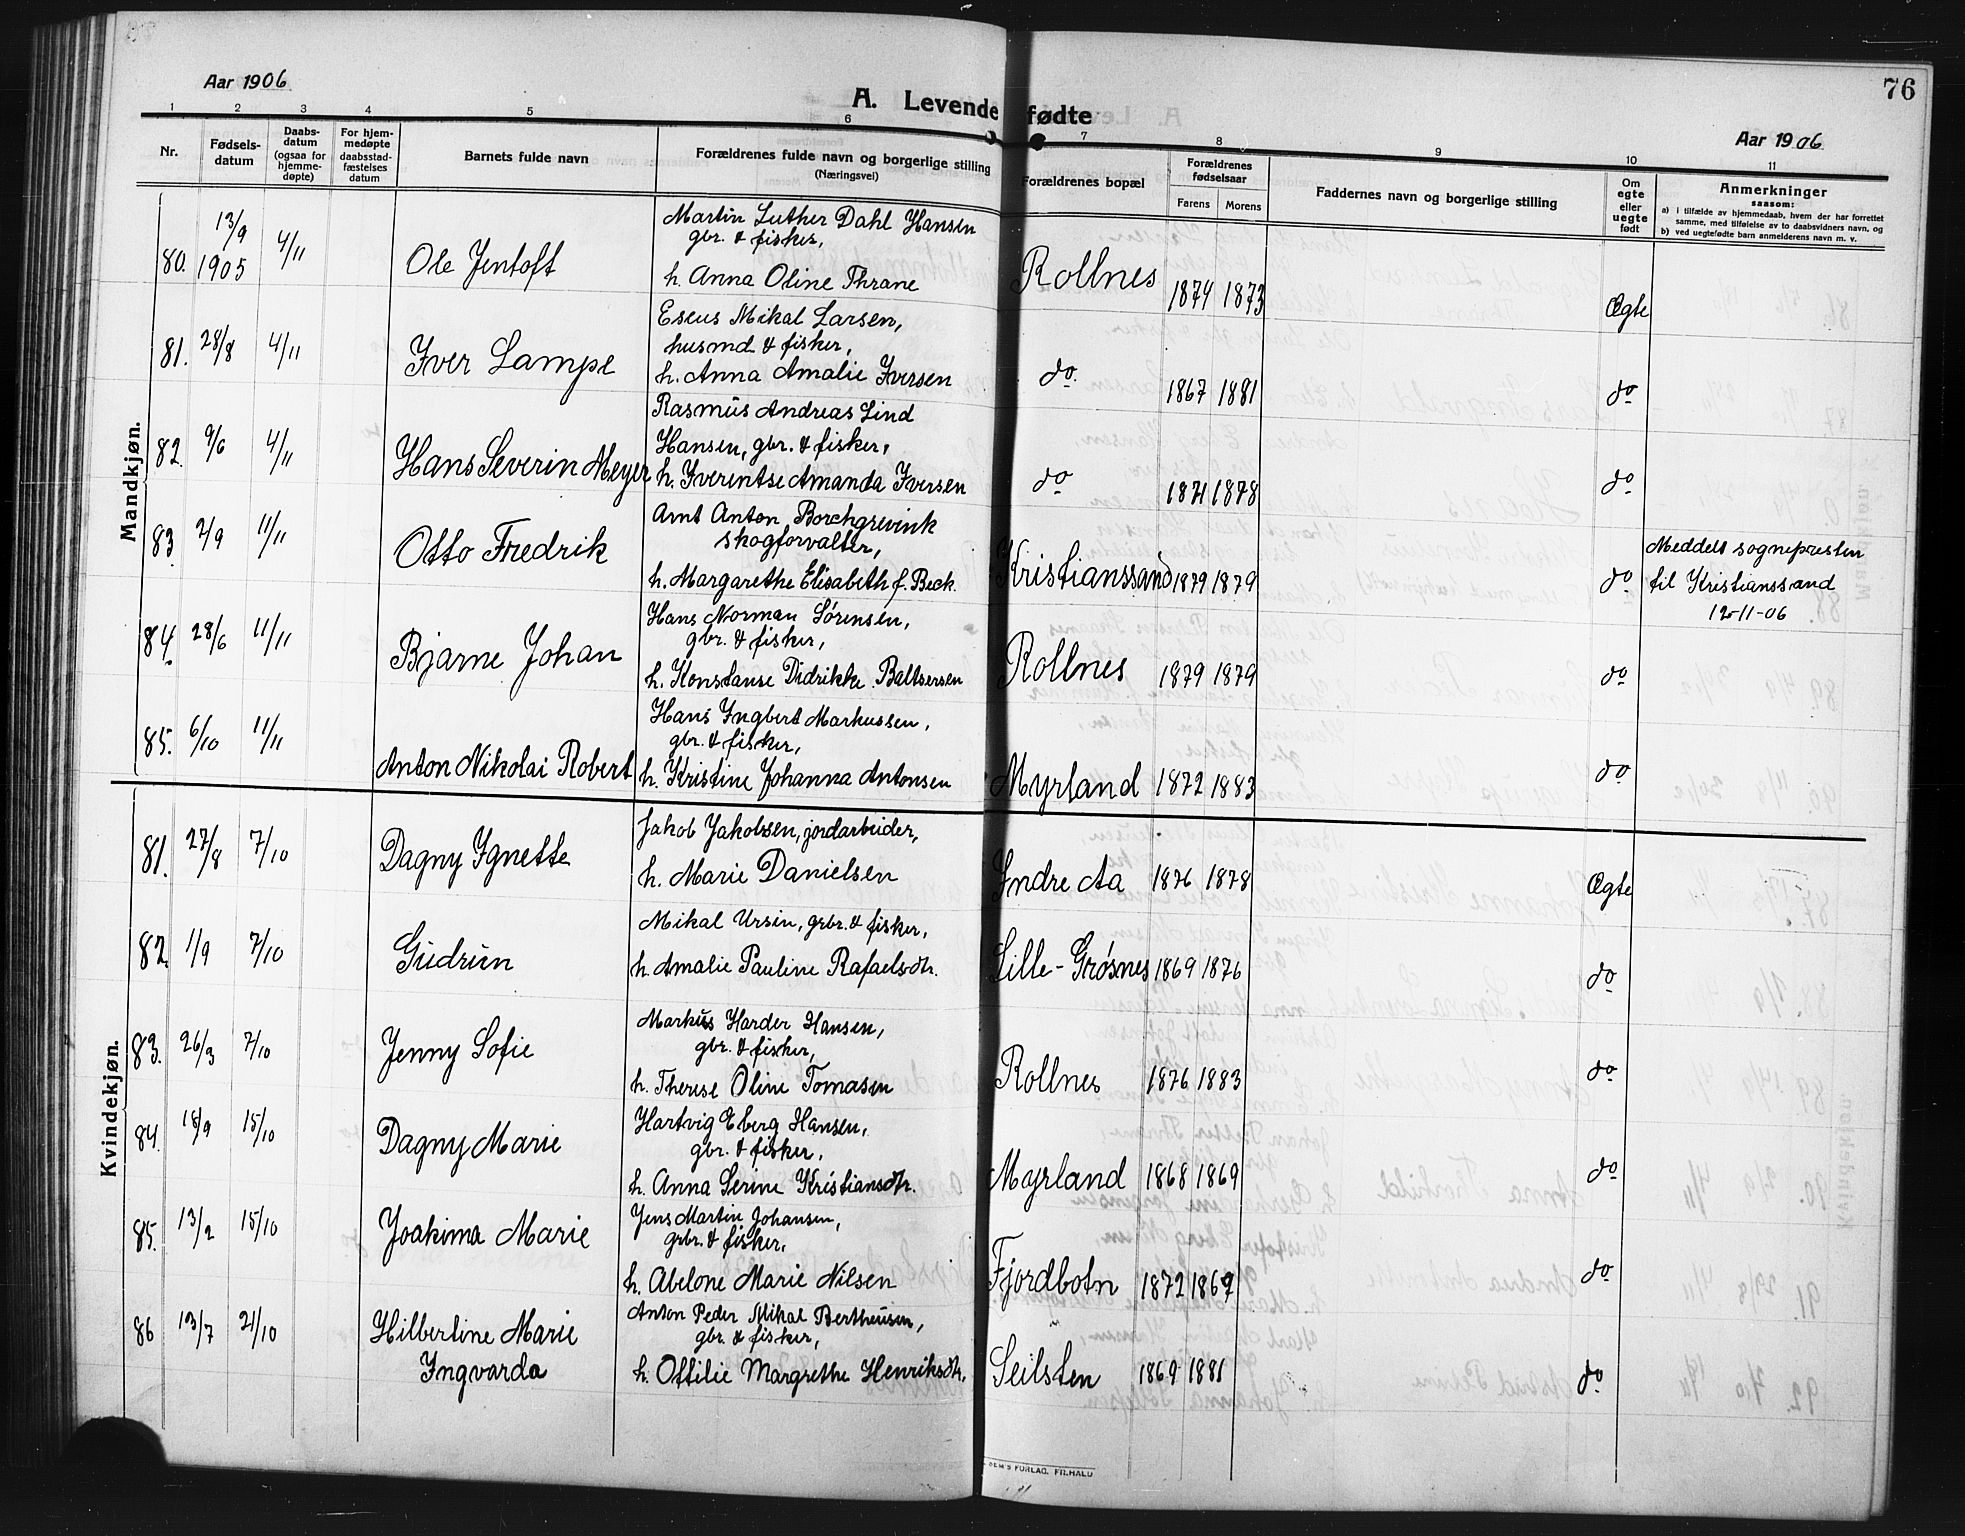 76
Aar 1906
A. Levende fødte
Aar 1906
1 2 3 4 5 6 7 8 9 10 11
Nr.
Fødsels-
datum
Daabs-
datum
(ogsaa for
hjemme-
døpte)
For hjem-
medøpte
daabsstad-
fæstelses
datum
Barnets fulde navn
Forældrenes fulde navn og borgerlige stilling
(Næringsvei)
Forældrenes bopæl
Forældrenes
fødselsaar
Farens Morens
Faddernes navn og borgerlige stilling
Om
egte
eller
uegte
født
Anmerkninger
saasom:
a) i tilfælde av hjemmedaab, hvem der har forrettet
samme, med tilføielse av to daabsvidners navn, og
b) ved uegtefødte barn anmelderens navn m. v.
Mandkjøn.
80. 13/9 1905 4/11 Ole Jentoft
Martin Luther Dahl Hansen
gbr. & fisker,
h. Anna Oline Thrane
Rollnes 1874 1873 Ægte
81. 28/8 4/11 Iver Lampe
Eseus Mikal Larsen,
husmd & fisker,
h. Anna Amalie Iversen
do. 1867 1881 do
82. 9/6 4/11 Hans Severin Meyer
Rasmus Andreas Lind
Hansen, gbr. & fisker,
h. Iverentse Amanda Iversen
do 1871 1878 do
83. 2/9 11/11 Otto Fredrik
Arnt Anton Borchgrevink
skogforvalter,
h. Margarethe Elisabeth f. Beck.
Kristianssand 1879 1879 do
Meddelt sognepresten
til Kristianssand
12-11-06
84. 28/6 11/11 Bjarne Johan
Hans Norman Sørensen,
gbr. & fisker,
h. Konstanse Didrikke Baltsersen
Rollnes 1879 1879 do
85. 6/10 11/11 Anton Nikolai Robert
Hans Ingbert Markussen,
gbr. & fisker,
h. Kristine Johanna Antonsen
Myrland 1872 1883 do
Kvindekjøn.
81. 27/8 7/10 Dagny Ignette
Jakob Jakobsen, jordarbeider,
h. Marie Danielsen
Indre Aa 1876 1878 Ægte
82. 1/9 7/10 Gudrun
Mikal Ursin, grbr. & fisker,
h. Amalie Pauline Rafaelsdtr.
Lille-Grøsnes 1869 1876 do
83. 26/3 7/10 Jenny Sofie
Markus Harder Hansen,
gbr. & fisker,
h. Therese Oline Tomasen
Rollnes 1876 1883 do
84. 18/9 15/10 Dagny Marie
Hartvig Eberg Hansen,
gbr. & fisker,
h. Anna Serine Kristiansdtr.
Myrland 1868 1869 do
85. 13/2 15/10 Joakima Marie
Jens Martin Johansen,
grbr. & fisker,
h. Abelone Marie Nilsen
Fjordbotn 1872 1869 do
86 13/7 21/10 Hilbertine Marie
Ingvarda
Anton Peder Mikal Bertheusen,
gbr. & fisker,
h. Ottilie Margrethe Henriksdtr.
Seilsten 1869 1881 do
FORLAG. FR.HALD